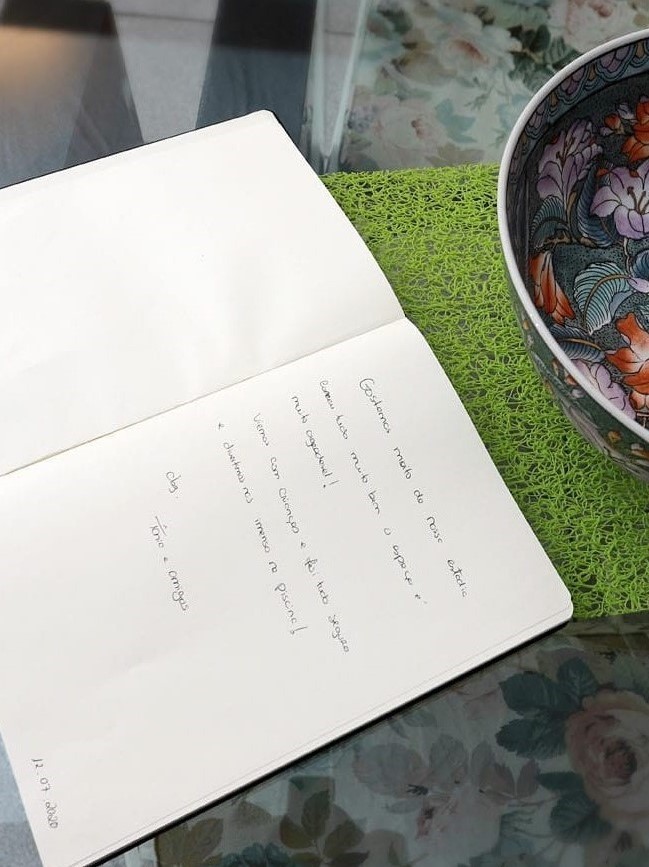 Gostamos muito da nossa estadia
Correu tudo muito bem o espaço é
muito agradável!
Viemos com crianças e foi tudo seguro
e divertimo nos imenso na piscina!
obg.
e amigos
12.07.2020